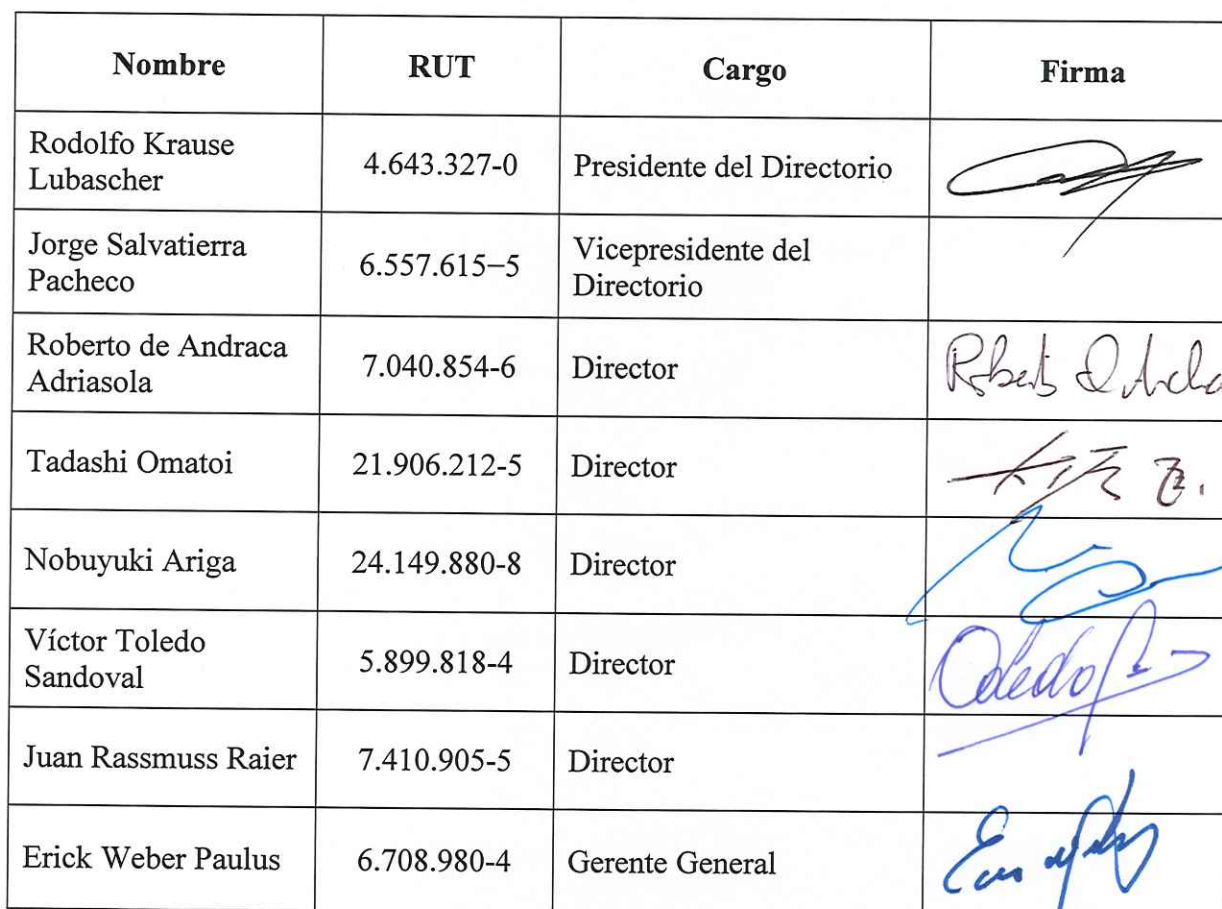 Nombre RUT Cargo Firma
Rodolfo Krause
Lubascher
4.643.327-0
Presidente del Directorio
Jorge Salvatierra
Pacheco
6.557.615–5
Vicepresidente del
Directorio
Roberto de Andraca
Adriasola
7.040.854-6
Director
Tadashi Omatoi
21.906.212-5
Director
Nobuyuki Ariga
24.149.880-8
Director
Víctor Toledo
Sandoval
5.899.818-4
Director
Juan Rassmuss Raier
7.410.905-5
Director
Erick Weber Paulus
6.708.980-4
Gerente General